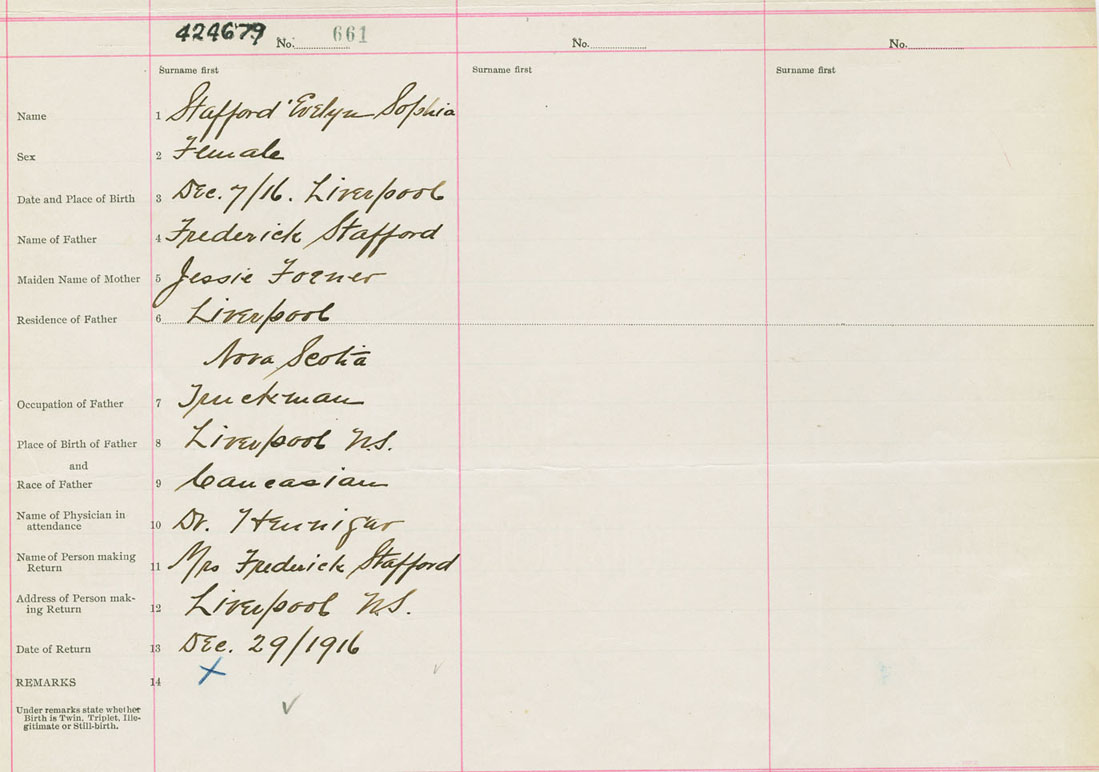 424679 No. 661 No. No.
Surname first Surname first Surname first
Name 1 Stafford Evelyn Sophia
Sex 2 Female
Date and Place of Birth 3 Dec. 7/16. Liverpool
Name of Father 4 Frederick Stafford
Maiden Name of Mother 5 Jessie Forner
Residence of Father 6 Liverpool
Nova Scotia
Occupation of Father 7 Truckman
Place of Birth of Father 8 Liverpool N.S.
and
Race of Father 9 Caucasian
Name of Physician in
attendance 10 Dr. Hennigar
Name of Person making
Return 11 Mrs Frederick Stafford
Address of Person mak-
ing Return 12 Liverpool N.S.
Date of Return 13 Dec. 29/1916
REMARKS 14
Under remarks state whether
Birth is Twin, Triplet, Ille-
gitimate or Still-birth.